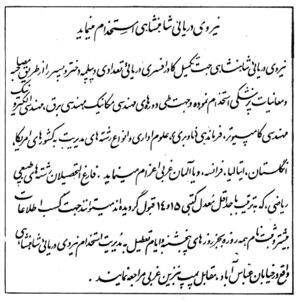 نیروی دریائی شاهنشاهی استخدام مینماید
نیروی دریائی شاهنشاهی جهت تکمیل کادر افسری دریائی تعدادی دیپلمه دختر و پسر را از طریق مصاحبه
و معاینات پزشکی استخدام نموده و جهت طی دوره‌های مهندسی مکانیک، مهندسی برق، مهندسی الکترونیک
مهندسی کامپیوتر، فرماندهی (ناوبری)، علوم اداری و انواع رشته‌های مدیریت به کشورهای امریکا،
انگلستان، ایتالیا، فرانسه و یا آلمان غربی اعزام مینماید. فارغ التحصیلان رشته‌های طبیعی
ریاضی، که بترتیب با حداقل معدل کتبی ۱۵ و ۱۴ قبول گردیده‌اند میتوانند جهت کسب اطلاعات
بیشتر و ثبت نام همه روزه بجز روزهای پنجشنبه و ایام تعطیل به مدیریت استخدام نیروی دریائی شاهنشاهی
واقع در خیابان عباس آباد مقابل پمپ بنزین غربی مراجعه نمایند.